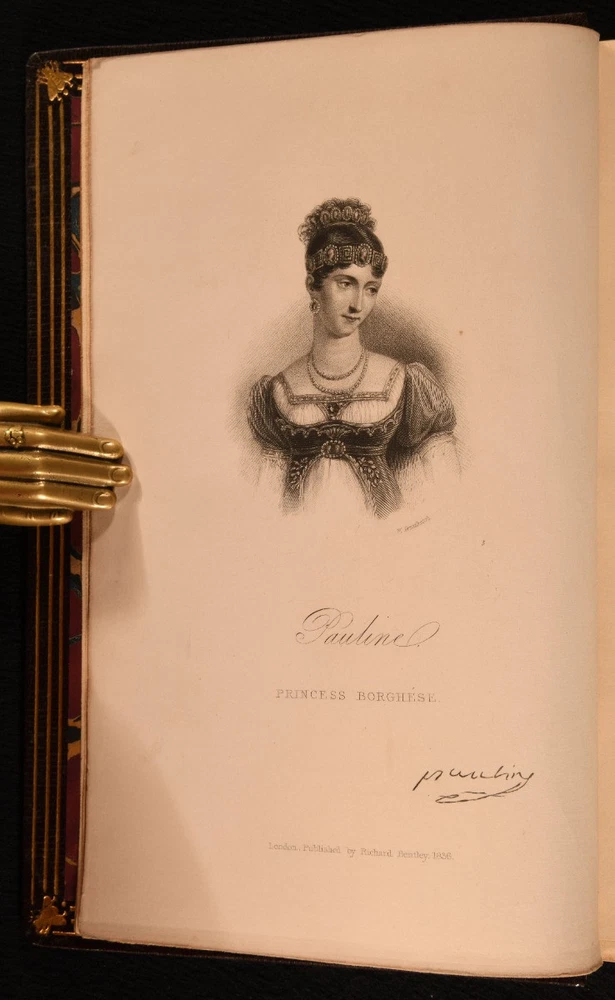 Pauline.
PRINCESS BORGHÉSE.
Pauline
London. Published by Richard Bentley. 1836.